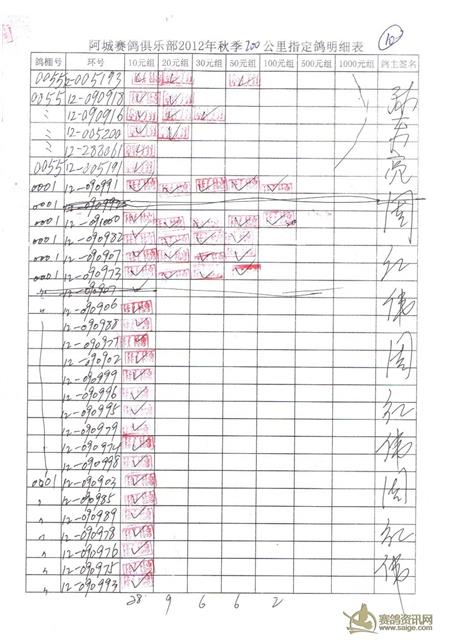 ⑫
阿城赛鸽俱乐部2012年秋季200公里指定鸽明细表
鸽棚号 环号 10元组 20元组 30元组 50元组 100元组 500元组 1000元组 鸽主签名
0055 12-005193
0055 12-090918
〃 12-090916
〃 12-005200
〃 12-288061
0055 12-305191
0001 12-090991
0001
0001 12-091000
0001 12-090982
〃 12-090907
0001 12-090973
〃 12-090907
〃 12-090906
12-090988
12-090977
12-090902
12-090999
12-090996
12-090995
12-090979
12-090974
12-090998
0001 12-090903
〃 12-090985
〃 12-090989
〃 12-090978
〃 12-090976
〃 12-090975
〃 12-090993
周
红
伟
周
红
伟
周
红
伟
28 9 6 6 2
赛鸽资讯网
www.saige.com